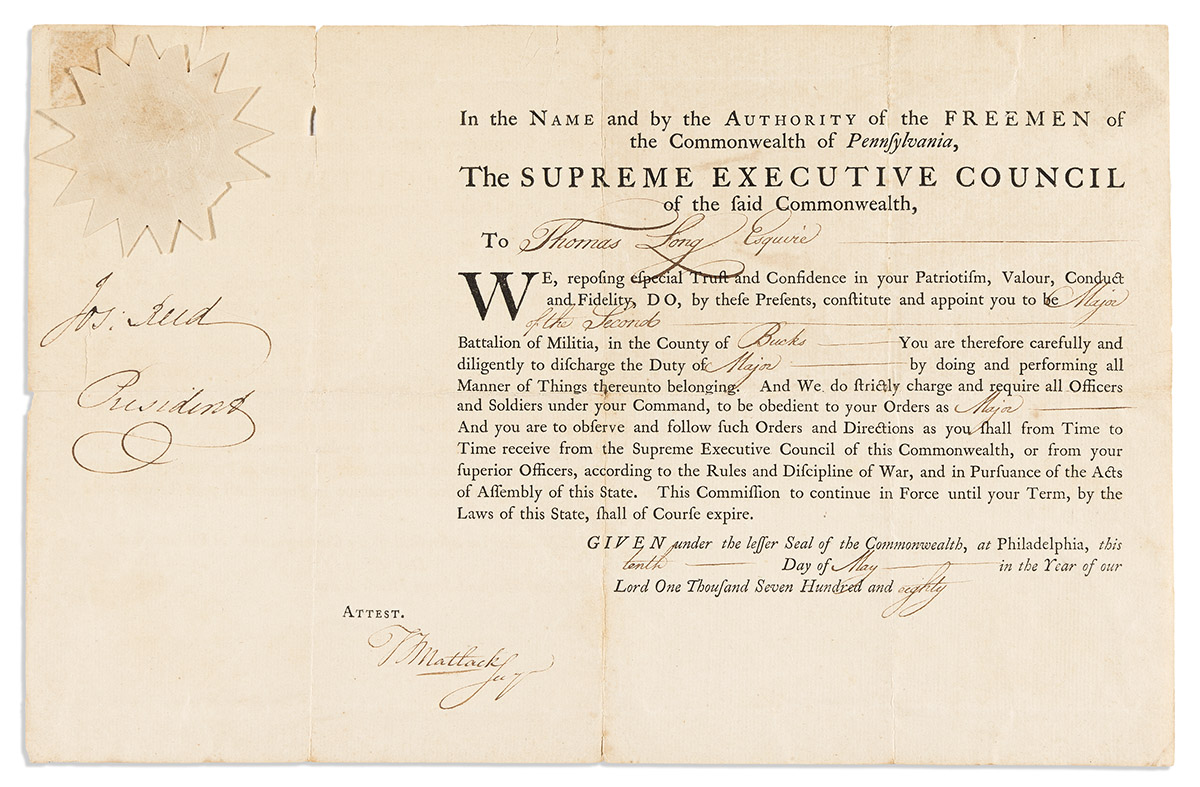 In the NAME and by the AUTHORITY of the FREEMEN of
the Commonwealth of Pennſylvania,
The SUPREME EXECUTIVE COUNCIL
of the ſaid Commonwealth,
To Thomas Long Esquire
WE, repoſing eſpecial Truſt and Confidence in your Patriotiſm, Valour, Conduct
and Fidelity, DO, by theſe Preſents, conſtitute and appoint you to be Major
of the Second
Battalion of Militia, in the County of Bucks You are therefore carefully and
diligently to diſcharge the Duty of Major by doing and performing all
Manner of Things thereunto belonging. And We do ſtrictly charge and require all Officers
and Soldiers under your Command, to be obedient to your Orders as Major
And you are to obſerve and follow ſuch Orders and Directions as you ſhall from Time to
Time receive from the Supreme Executive Council of this Commonwealth, or from your
ſuperior Officers, according to the Rules and Diſcipline of War, and in Purſuance of the Acts
of Aſſembly of this State. This Commiſſion to continue in Force until your Term, by the
Laws of this State, ſhall of Courſe expire.
GIVEN under the leſſer Seal of the Commonwealth, at Philadelphia, this
tenth Day of May in the Year of our
Lord One Thouſand Seven Hundred and eighty
Jos: Reed
President
ATTEST.
T Matlack Secy